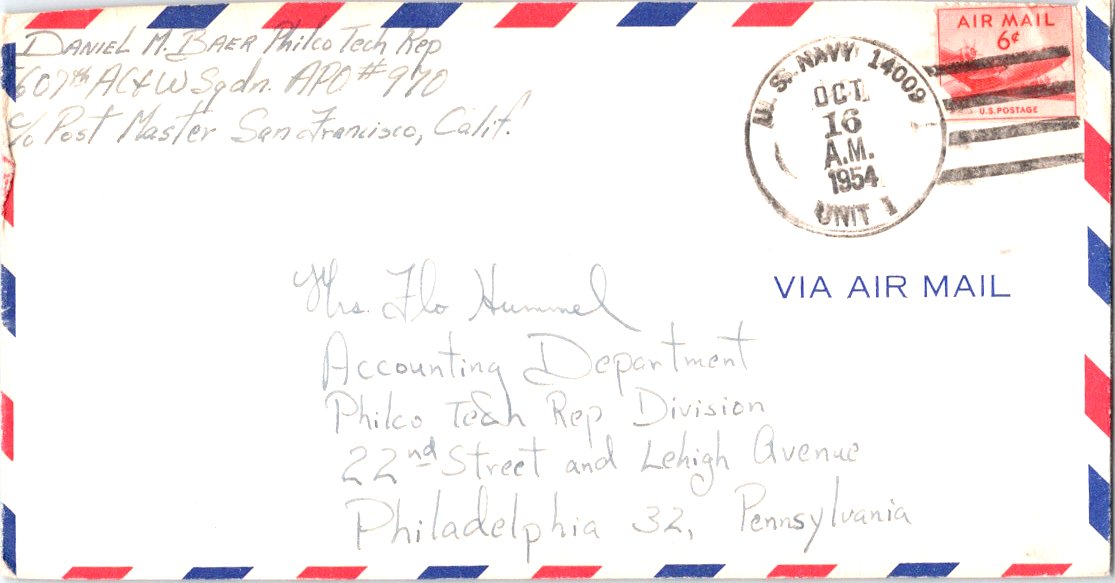 DANIEL M. BAER Philco Tech Rep
607th AC&W Sqdn. APO #970
c/o Post Master San Francisco, Calif.
AIR MAIL
6¢
U.S. POSTAGE
U.S. NAVY 14009
OCT.
16
A.M.
1954
UNIT 1
VIA AIR MAIL
Mrs. Flo Hummel
Accounting Department
Philco Tech Rep Division
22nd Street and Lehigh Avenue
Philadelphia 32, Pennsylvania